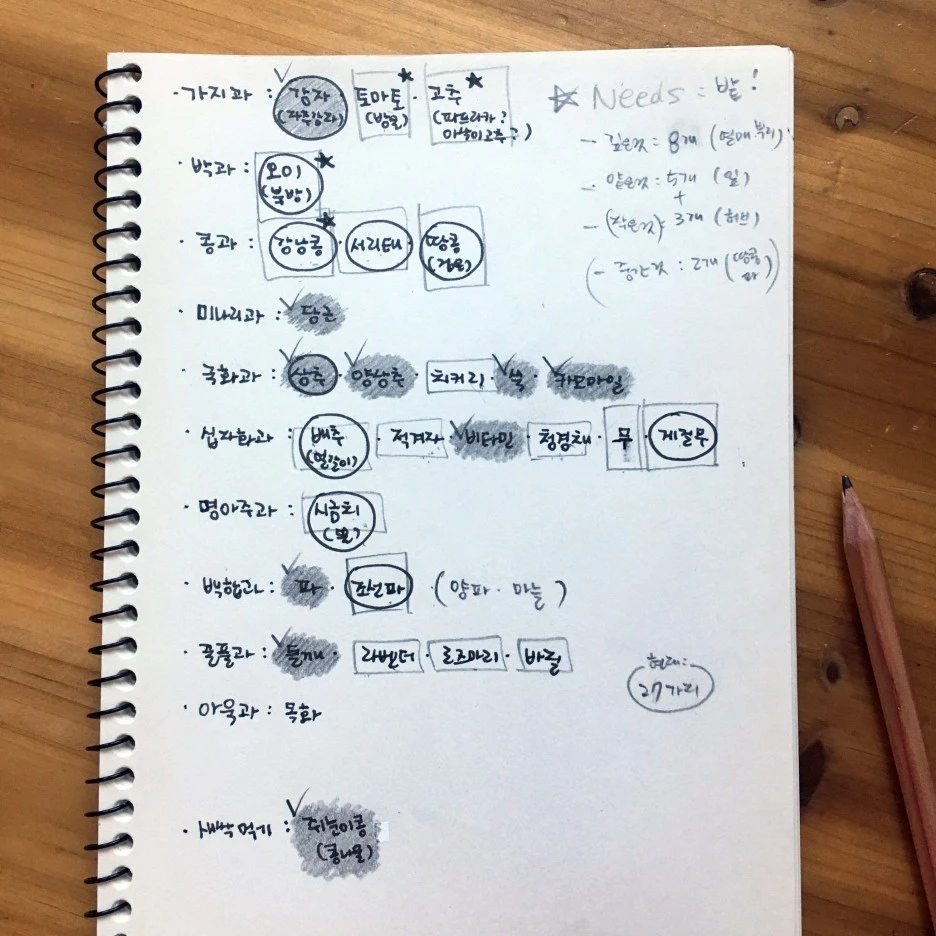 · 가지과 : 감자 · 토마토 · 고추
(자주감자) (방울) (파프리카?
아삭이고추?)
Needs : 밭!
- 깊은것 : 8개 (열매 뿌리)
- 얕은것 : 5개 (잎)
+
- (작은것) : 3개 (허브)
(- 중간것 : 2개 (땅콩
파)
· 박과 : 오이
(북방)
· 콩과 : 강낭콩 · 서리태 · 땅콩
(검은)
· 미나리과 : 당근
· 국화과 : 상추 · 양상추 · 치커리 · 쑥 · 카모마일
· 십자화과 : 배추 · 적겨자 · 비타민 · 청경채 · 무 · 게걸무
(얼갈이)
· 명아주과 : 시금치
· 백합과 : 파 · 조선파 · (양파 · 마늘)
· 꿀풀과 : 들깨 · 라벤더 · 로즈마리 · 바질
현재:
27가지
· 아욱과 : 목화
· 새싹먹기 : 쥐눈이콩
(콩나물)